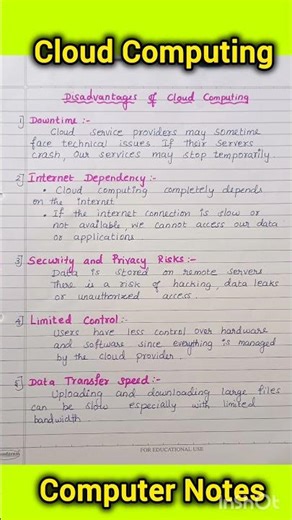 Cloud Computing
Disadvantages of Cloud Computing
1) Downtime :-
Cloud service providers may sometime
face technical issues If their servers
crash, our services may stop temporarily.
2) Internet Dependency :-
• Cloud computing completely depends
on the internet
• If the internet connection is slow or
not available, we cannot access our data
or applications
3) Security and Privacy Risks :-
Data is stored on remote servers
There is a risk of hacking, data leaks
or unauthorized access.
4) Limited Control :-
Users have less control over hardware
and software since everything is managed
by the cloud provider.
5) Data Transfer Speed :-
Uploading and downloading large files
can be slow especially with limited
bandwidth
FOR EDUCATIONAL USE
Computer Notes
InShot